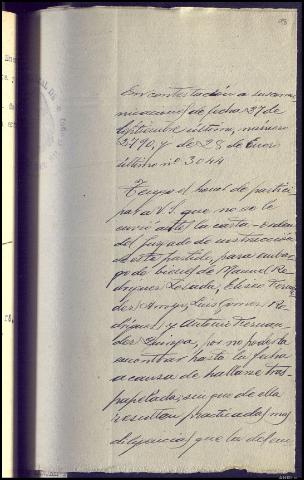 98
En contestación a su comu-
nicaciones de fecha 27 de
Septiembre último, número
2790, y de 28 de Enero
último nº 3044
Tengo el honor de partici-
par a V.S. que no se le
envió antes la carta-orden
del Juzgado de instrucción
de este partido, para embar-
go de bienes de Manuel Ro-
dríguez Losada, Eliseo Fernan-
dez Luis Gómez Ro-
dríguez y Antonio Fernan-
dez por no poderla
encontrar hasta la fecha
a causa de hallarse tras-
papelada, sin que de ella
resulten practicadas mas
diligencias que las de